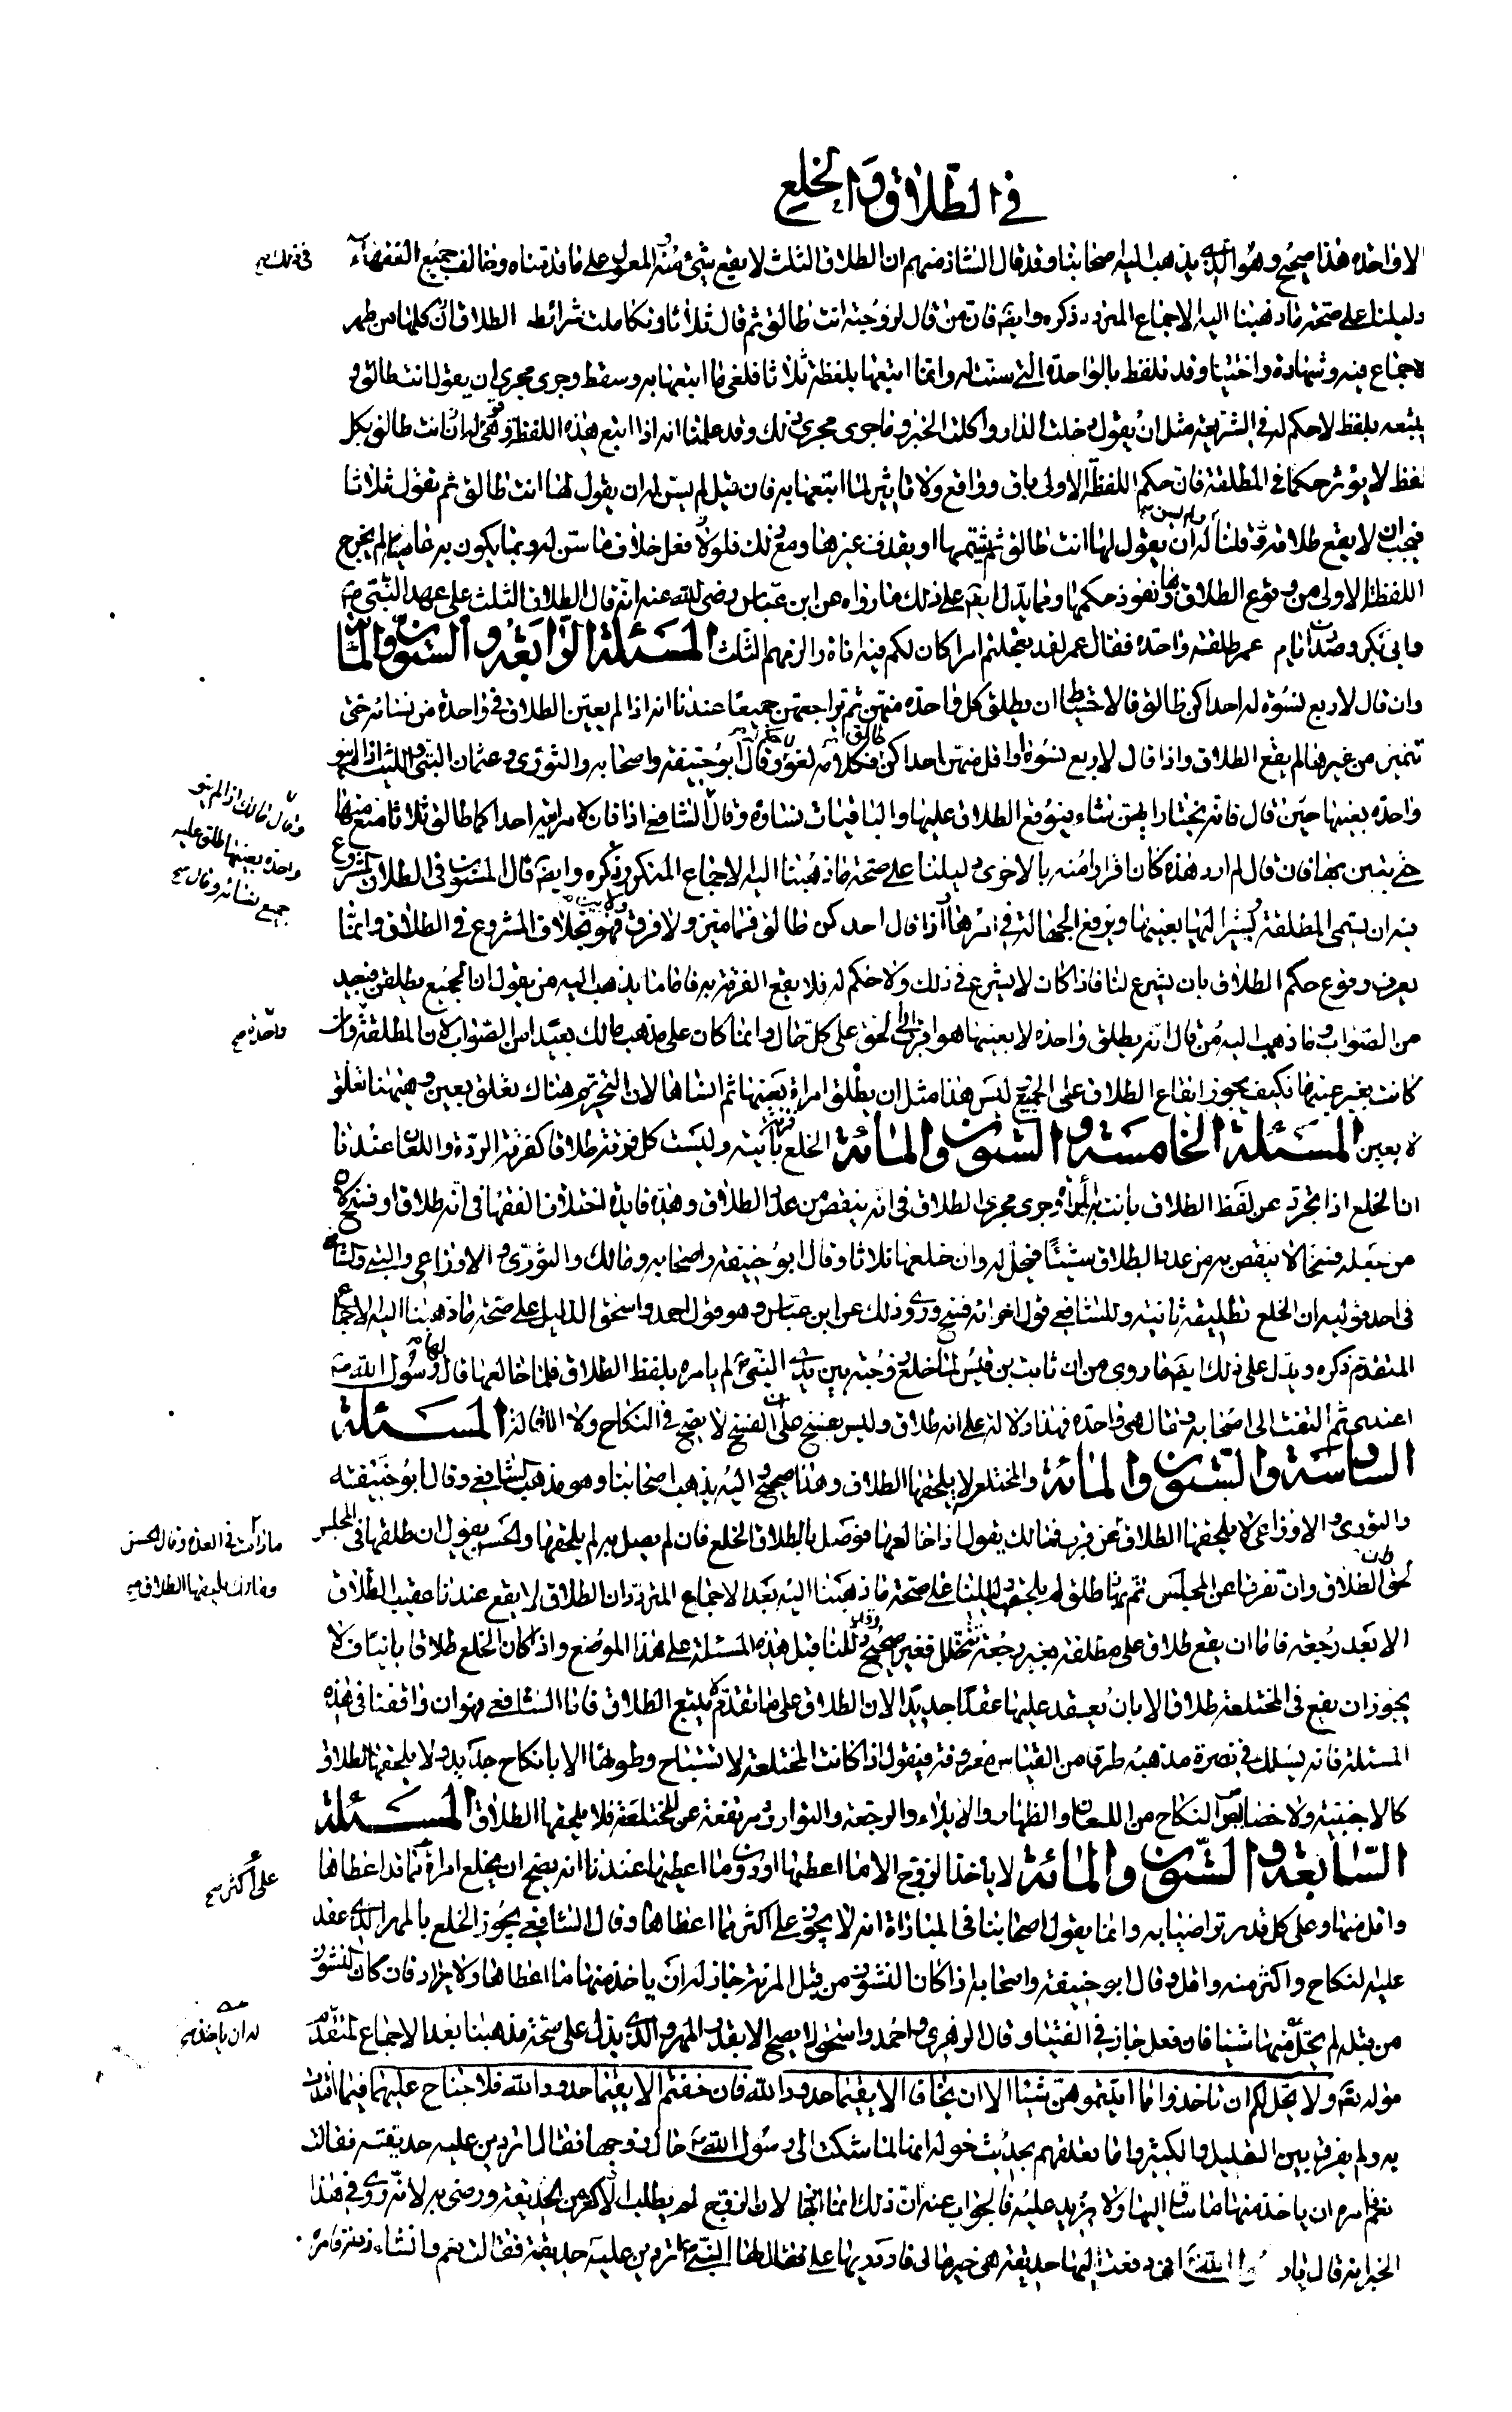 في الطلاق والخلع
الا واحدة هذا صحيح وهو الذي يذهب اليه اصحابنا وقد قال الشاذ منهم ان الطلاق الثلث لا يقع شيء منه والمعول على ما قدمناه وخالف جميع الفقهاء
في ذلك صح
دليلنا على صحة ما ذهبنا اليه الاجماع المتردد ذكره وايضه فان من قال لزوجته انت طالق ثم قال ثلاثا وتكاملت شرائط الطلاق ان كلها من طهر
لا جماع فيه وشهادة واختيار وقد تلفظ بالواحدة التي سنت له وانما اتبعها بلفظة ثلاثا فلغى ما اتبعها به وسقط وجرى مجرى ان يقول انت طالق و
يتبعه بلفظ لا حكم له في الشريعة مثل ان يقول دخلت الدار واكلت الخبز وما جرى مجرى ذلك وقد علمنا انه اذا اتبع هذه اللفظة وهي قوله انت طالق بكل
لفظ لا يؤثر حكما في المطلقة فان حكم اللفظة الاولى باق وواقع ولا تاثير لما اتبعها به فان قيل لم يسن له ان يقول لها انت طالق ثم يقول ثلاثا
فيجب ان لا يقع طلاقه قلنا ولم يسن له ان يقول لها انت طالق ثم يشتمها او يقذف غيرها ومع ذلك فلو فعل خلاف ما سن له وبما يكون به عاصيا لم يخرج
اللفظ الاولى من وقوع الطلاق بها ونفوذ حكمها ومما يدل ايضه على ذلك ما رواه عن ابن عباس رضي الله عنه انه قال الطلاق الثلث على عهد النبي ص
وابي بكر وصدر ايام عمر طلقة واحدة فقال عمر لقد تعجلتم امرا كان لكم فيه اناة والزمهم الثلث المسئلة الرابعة والستون والمائة
وان قال لاربع نسوة له احداكن طالق فالاحتياط ان يطلق كل واحدة منهن ثم يراجعهن جميعا عندنا انه اذا لم يعين الطلاق في واحدة من نسائه حتى
تتميز من غيرها لم يقع الطلاق واذا قال لاربع نسوة او اقل منهن احداكن طالق فكلامه لغو وقال ابو حنيفة واصحابه والثوري وعثمان البتي والليث اذا لم ينو
واحدة بعينها حين قال فانه يختار ايهن شاء فيوقع الطلاق عليها والباقيات نساؤه وقال الشافعي اذا قال لامراتيه احداكما طالق ثلاثا منع منهما
وقال مالك اذا لم ينو
واحدة بعينها طلق عليه
جميع نسائه وقال صح
حتى يتبين بها فان قال لم ارد هذه كان اقرارا منه بالاخرى دليلنا على صحة ما ذهبنا اليه الاجماع المتكرر ذكره وايضه قال المسنون في الطلاق المشروع
فيه ان يسمى المطلقة ويشير اليها بعينها ويرفع الجهالة في امرها واذا قال احدكن طالق فما ميز ولا فرق فهو بخلاف المشروع في الطلاق وانما
يعرف وقوع حكم الطلاق بان يشرع لنا فاذا كان لا يشرع في ذلك ولا حكم له فلا يقع الفرقة به فاما ما يذهب اليه من يقول ان الجميع يطلقن فبعيد
من الصواب وما ذهب اليه من قال انه يطلق واحدة لا بعينها هو اقرب الى الحق على كل حال وانما كان على مذهب مالك بعيدا من الصواب لان المطلقة وان
واحدة صح
كانت بغير عينها فكيف يجوز ايقاع الطلاق على الجميع ليس هذا مثل ان يطلق امراة بعينها ثم انساها لان التحريم هناك تعلق بعين وهيهنا تعلق
لا بعين المسئلة الخامسة والستون والمائة الخلع فرقة بائنة وليست كل فرقة طلاقا كفرقة الردة واللعان عندنا
ان الخلع اذا تجرد عن لفظ الطلاق بانت به المراة وجرى مجرى الطلاق في انه ينقص من عدد الطلاق وهذه فائدة اختلاف الفقهاء في انه طلاق او فسخ لان
من جعله فسخا لا ينقص به من عدد الطلاق شيئا فيحل له وان خلعها ثلاثا وقال ابو حنيفة واصحابه ومالك والثوري والاوزاعي والبتي والشافعي
في احد قوليه ان الخلع تطليقة ثانية وللشافعي قول اخر انه فسخ وروى ذلك عن ابن عباس وهو قول احمد واسحق الدليل على صحة ما ذهبنا اليه الاجماع
المتقدم ذكره ويدل على ذلك ايضه ما روي من ان ثابت بن قيس لما خلع زوجته بين يدي النبي ص لم يامره بلفظ الطلاق فلما خالعها قال لها رسول الله ص
اعتدي ثم التفت الى اصحابه وقال هي واحدة فهذا دلالة على انه طلاق وليس بفسخ على ان الفسخ لا يصح في النكاح ولا الاقالة المسئلة
السادسة والستون والمائة والمختلعة لا يلحقها الطلاق وهذا صحيح واليه يذهب اصحابنا وهو مذهب الشافعي وقال ابو حنيفة
والثوري والاوزاعي لا يلحقها الطلاق عن قرب فمالك يقول اذا خالعها فوصل بالطلاق الخلع فان لم يصل به لم يلحقها والحسن يقول ان طلقها في المجلس
ما دامت في العدة وقال الحسن
ومالك يلحقها الطلاق صح
لحق الطلاق وان تفرقا عن المجلس ثم طلق لم يلحقها دليلنا على صحة ما ذهبنا اليه بعد الاجماع المتردد ان الطلاق لا يقع عندنا عقيب الطلاق
الا بعد رجعة فاما ان يقع طلاق على مطلقة بغير رجعة تتخلل فغير صحيح وقد دللنا قبل هذه المسئلة على هذا الموضع واذا كان الخلع طلاقا بائنا فلا
يجوز ان يقع في المختلعة طلاق الا بان يعقد عليها عقدا جديدا لان الطلاق على ما تقدم لا يتبع الطلاق فاما الشافعي فهو وان وافقنا في هذه
المسئلة فانه يسلك في نصرة مذهبه طرقا من القياس معروفة فيقول اذا كانت المختلعة لا تستباح وطوها الا بانكاح جديد ولا يلحقها الطلاق
كالاجنبية ولا خصائص النكاح من اللعان والظهار والايلاء والرجعة والتوارث مرتفعة عن المختلعة فلا يلحقها الطلاق المسئلة
السابعة والستون والمائة لا ياخذ الزوج الا ما اعطيها او دون ما اعطيها عندنا انه يصح ان يخلع امراة مما قد اعطاها
على اكثر صح
واقل منها وعلى كل قدر تراضيا به وانما يقول اصحابنا في المباراة انه لا يجوز على اكثر مما اعطاها وقال الشافعي يجوز الخلع بالمهر الذي عقد
عليه لنكاح واكثر منه واقل وقال ابو حنيفة واصحابه اذا كان النشوز من قبل المراة جاز له ان ياخذ منها ما اعطاها ولا يزاد فان كان النشوز
من قبله لم يحل منها شيئا فان فعل جاز في الفتيا وقال الزهري واحمد واسحق لا يصح الا بقدر المهر والذي يدل على صحة مذهبنا بعد الاجماع المتقدم
له ان ياخذ صح
قوله تعه ولا يحل لكم ان تاخذوا مما اتيتموهن شيئا الا ان يخافا الا يقيما حدود الله فان خفتم الا يقيما حدود الله فلا جناح عليهما فيما افتدت
به ولم يفرق بين القليل والكثير واما تعلقهم بحديث خولة انها لما شكت الى رسول الله ص حال زوجها فقال اتردين عليه حديقته فقالت
نعم فامره ان ياخذ منها ما ساق اليها ولا يزيد عليه فالجواب عنه ان ذلك انما لان الزوج لم يطلب الاكثر من الحديقة ورضي به لانه روى في هذا
الخبر انه قال يا رسول الله اني دفعت اليها حديقة هي خير مالي فقال لها النبي ص اتردين عليه حديقة فقالت نعم وان شاء زدته